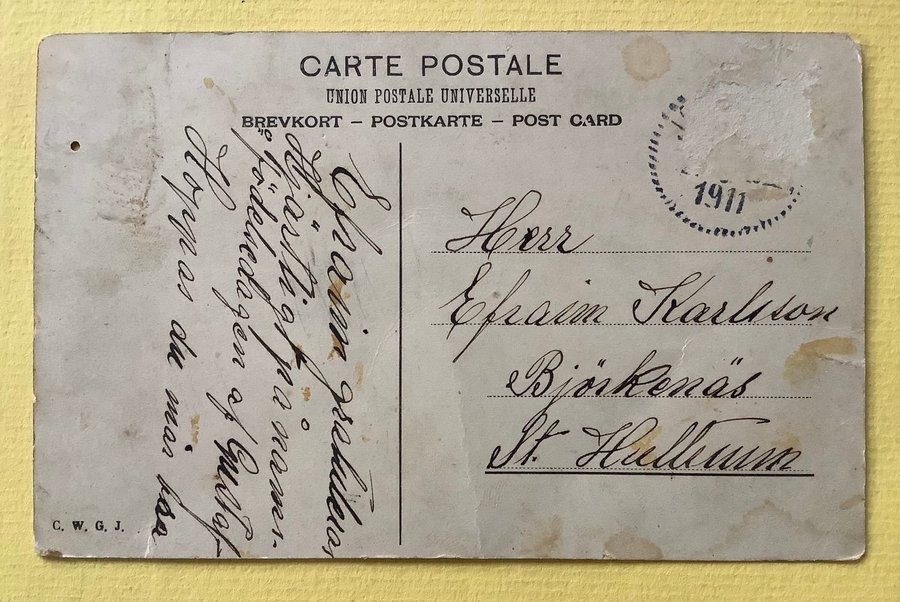 CARTE POSTALE
UNION POSTALE UNIVERSELLE
BREVKORT – POSTKARTE – POST CARD
1911
Efraim gratuleras
Hjärtligt på namns-
födelsedagen af Gustaf
Hopas du mår bra
Herr
Efraim Karlsson
Björkenäs
St. Hultrum
C. W. G. J.